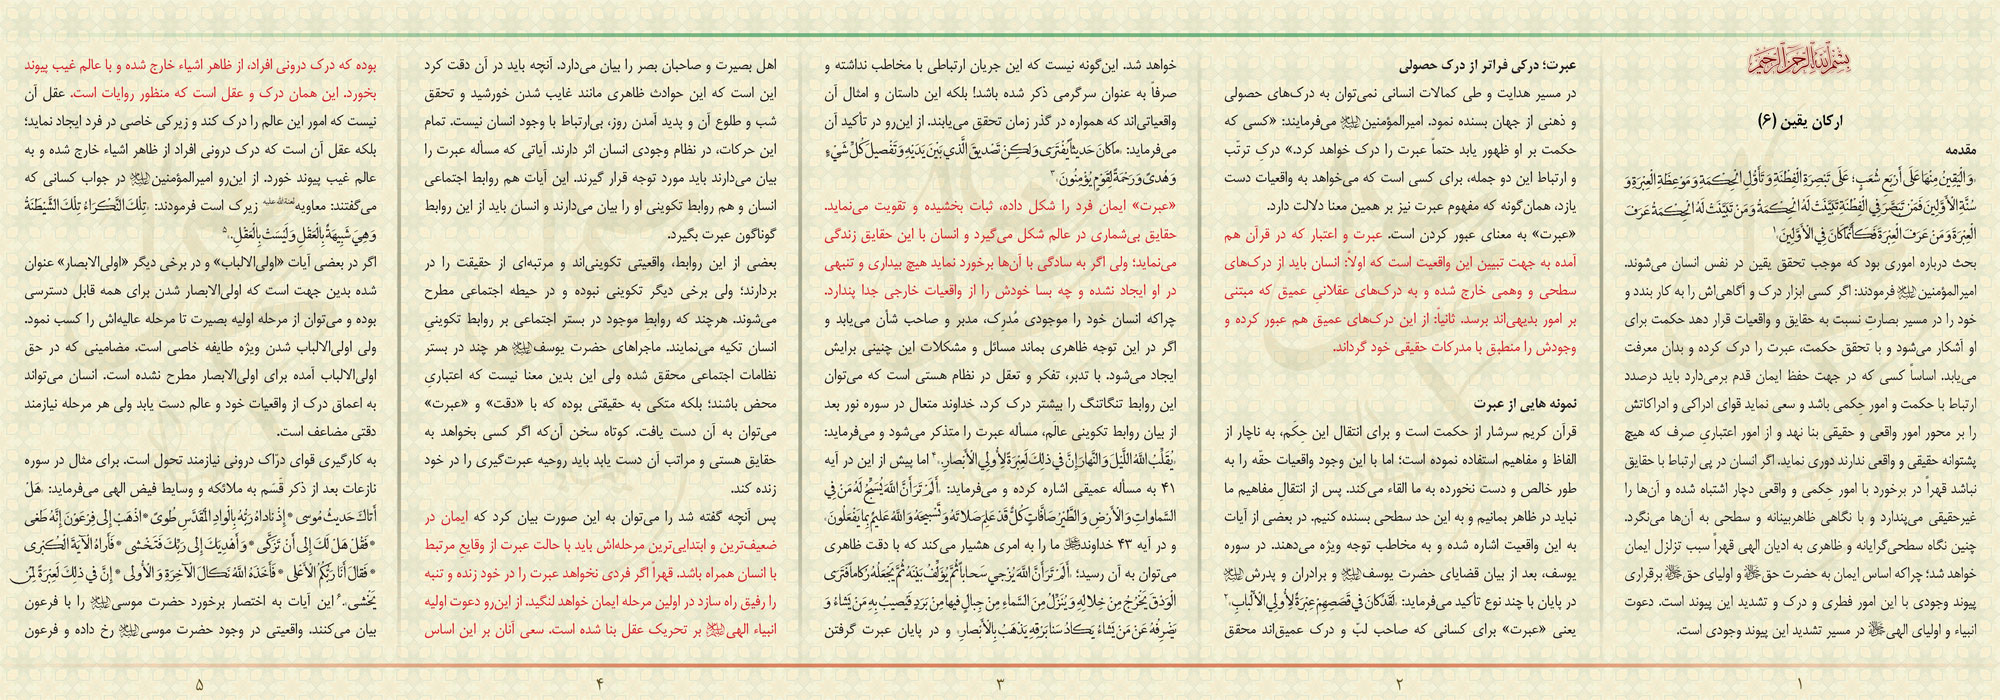 بِسْمِ اللَّهِ الرَّحْمنِ الرَّحِيمِ
ارکان یقین (۶)
مقدمه
«وَ الْيَقِينُ مِنْهَا عَلَى أَرْبَعِ شُعَبٍ؛ عَلَى تَبْصِرَةِ الْفِطْنَةِ وَ تَأَوُّلِ الْحِكْمَةِ وَ مَوْعِظَةِ الْعِبْرَةِ وَ
سُنَّةِ الْأَوَّلِينَ فَمَنْ تَبَصَّرَ فِي الْفِطْنَةِ تَبَيَّنَتْ لَهُ الْحِكْمَةُ وَ مَنْ تَبَيَّنَتْ لَهُ الْحِكْمَةُ عَرَفَ
الْعِبْرَةَ وَ مَنْ عَرَفَ الْعِبْرَةَ فَكَأَنَّمَا كَانَ فِي الْأَوَّلِينَ»۱
بحث درباره اموری بود که موجب تحقق یقین در نفس انسان می‌شوند.
امیرالمؤمنین علیه‌السلام فرمودند: اگر کسی ابزار درک و آگاهی‌اش را به کار بندد و
خود را در مسیر بصارتِ نسبت به حقایق و واقعیات قرار دهد حکمت برای
او آشکار می‌شود و با تحقق حکمت، عبرت را درک کرده و بدان معرفت
می‌یابد. اساساً کسی که در جهت حفظ ایمان قدم برمی‌دارد باید درصدد
ارتباط با حکمت و امور حِکمی باشد و سعی نماید قوای ادراکی و ادراکاتش
را بر محور امور واقعی و حقیقی بنا نهد و از امور اعتباریِ صرف که هیچ
پشتوانه حقیقی و واقعی ندارند دوری نماید. اگر انسان در پی ارتباط با حقایق
نباشد قهراً در برخورد با امور حِکمی و واقعی دچار اشتباه شده و آن‌ها را
غیرحقیقی می‌پندارد و با نگاهی ظاهربینانه و سطحی به آن‌ها می‌نگرد.
چنین نگاه سطحی‌گرایانه و ظاهری به ادیان الهی قهراً سبب تزلزل ایمان
خواهد شد؛ چراکه اساس ایمان به حضرت حق و اولیای حق برقراری
پیوند وجودی با این امور فطری و درک و تشدید این پیوند است. دعوت
انبیاء و اولیای الهی در مسیر تشدید این پیوند وجودی است.
۱
عبرت؛ درکی فراتر از درک حصولی
در مسیر هدایت و طی کمالات انسانی نمی‌توان به درک‌های حصولی
و ذهنی از جهان بسنده نمود. امیرالمؤمنین علیه‌السلام می‌فرمایند: «کسی که
حکمت بر او ظهور یابد حتماً عبرت را درک خواهد کرد.» درکِ ترتّب
و ارتباط این دو جمله، برای کسی است که می‌خواهد به واقعیات دست
یازد، همان‌گونه که مفهوم عبرت نیز بر همین معنا دلالت دارد.
«عبرت» به معنای عبور کردن است. عبرت و اعتبار که در قرآن هم
آمده به جهت تبیین این واقعیت است که اولاً: انسان باید از درک‌های
سطحی و وهمی خارج شده و به درک‌های عقلانی عمیق که مبتنی
بر امور بدیهی‌اند برسد. ثانیاً: از این درک‌های عمیق هم عبور کرده و
وجودش را منطبق با مدرکات حقیقی خود گرداند.
نمونه هایی از عبرت
قرآن کریم سرشار از حکمت است و برای انتقال این حِکَم، به ناچار از
الفاظ و مفاهیم استفاده نموده است؛ اما با این وجود واقعیات حقّه را به
طور خالص و دست نخورده به ما القاء می‌کند. پس از انتقالِ مفاهیم ما
نباید در ظاهر بمانیم و به این حد سطحی بسنده کنیم. در بعضی از آیات
به این واقعیت اشاره شده و به مخاطب توجه ویژه می‌دهند. در سوره
یوسف، بعد از بیان قضایای حضرت یوسف علیه‌السلام و برادران و پدرش علیه‌السلام
در پایان با چند نوع تأکید می‌فرماید: «لَقَدْ كانَ في قَصَصِهِمْ عِبْرَةٌ لِأُولِي الْأَلْبابِ»۲
یعنی «عبرت» برای کسانی که صاحب لبّ و درک عمیق‌اند محقق
۲
خواهد شد. این‌گونه نیست که این جریان ارتباطی با مخاطب نداشته و
صرفاً به عنوان سرگرمی ذکر شده باشد! بلکه این داستان و امثال آن
واقعیاتی‌اند که همواره در گذر زمان تحقق می‌یابند. از این‌رو در تأکید آن
می‌فرماید: «ما كانَ حَديثاً يُفْتَرى وَ لكِنْ تَصْديقَ الَّذي بَيْنَ يَدَيْهِ وَ تَفْصيلَ كُلِّ شَيْءٍ
وَ هُدىً وَ رَحْمَةً لِقَوْمٍ يُؤْمِنُونَ»۳
«عبرت» ایمان فرد را شکل داده، ثبات بخشیده و تقویت می‌نماید.
حقایق بی‌شماری در عالم شکل می‌گیرد و انسان با این حقایق زندگی
می‌نماید؛ ولی اگر به سادگی با آن‌ها برخورد نماید هیچ بیداری و تنبهی
در او ایجاد نشده و چه بسا خودش را از واقعیات خارجی جدا پندارد.
چراکه انسان خود را موجودی مُدرِک، مدبر و صاحب شأن می‌یابد و
اگر در این توجه ظاهری بماند مسائل و مشکلات این چنینی برایش
ایجاد می‌شود. با تدبر، تفکر و تعقل در نظام هستی است که می‌توان
این روابط تنگاتنگ را بیشتر درک کرد. خداوند متعال در سوره نور بعد
از بیان روابط تکوینی عالَم، مسأله عبرت را متذکر می‌شود و می‌فرماید:
«يُقَلِّبُ اللَّهُ اللَّيْلَ وَ النَّهارَ إِنَّ في ذلِكَ لَعِبْرَةً لِأُولِي الْأَبْصارِ»۴ اما پیش از این در آیه
۴۱ به مسأله عمیقی اشاره کرده و می‌فرماید: «أَ لَمْ تَرَ أَنَّ اللَّهَ يُسَبِّحُ لَهُ مَنْ فِي
السَّماواتِ وَ الْأَرْضِ وَ الطَّيْرُ صَافَّاتٍ كُلٌّ قَدْ عَلِمَ صَلاتَهُ وَ تَسْبيحَهُ وَ اللَّهُ عَليمٌ بِما يَفْعَلُونَ»
و در آیه ۴۳ خداوند ما را به امری هشیار می‌کند که با دقت ظاهری
می‌توان به آن رسید؛ «أَ لَمْ تَرَ أَنَّ اللَّهَ يُزْجي سَحاباً ثُمَّ يُؤَلِّفُ بَيْنَهُ ثُمَّ يَجْعَلُهُ رُكاماً فَتَرَى
الْوَدْقَ يَخْرُجُ مِنْ خِلالِهِ وَ يُنَزِّلُ مِنَ السَّماءِ مِنْ جِبالٍ فيها مِنْ بَرَدٍ فَيُصيبُ بِهِ مَنْ يَشاءُ وَ
يَصْرِفُهُ عَنْ مَنْ يَشاءُ يَكادُ سَنا بَرْقِهِ يَذْهَبُ بِالْأَبْصارِ»، و در پایان عبرت گرفتن
۳
اهل بصیرت و صاحبان بصر را بیان می‌دارد. آنچه باید در آن دقت کرد
این است که این حوادث ظاهری مانند غایب شدن خورشید و تحقق
شب و طلوع آن و پدید آمدن روز، بی‌ارتباط با وجود انسان نیست. تمام
این حرکات، در نظام وجودی انسان اثر دارند. آیاتی که مسأله عبرت را
بیان می‌دارند باید مورد توجه قرار گیرند. این آیات هم روابط اجتماعی
انسان و هم روابط تکوینی او را بیان می‌دارند و انسان باید از این روابط
گوناگون عبرت بگیرد.
بعضی از این روابط، واقعیتی تکوینی‌اند و مرتبه‌ای از حقیقت را در
بردارند؛ ولی برخی دیگر تکوینی نبوده و در حیطه اجتماعی مطرح
می‌شوند. هرچند که روابطِ موجود در بستر اجتماعی بر روابط تکوینیِ
انسان تکیه می‌نمایند. ماجراهای حضرت یوسف علیه‌السلام هر چند در بستر
نظامات اجتماعی محقق شده ولی این بدین معنا نیست که اعتباریِ
محض باشند؛ بلکه متکی به حقیقتی بوده که با «دقت» و «عبرت»
می‌توان به آن دست یافت. کوتاه سخن آن‌که اگر کسی بخواهد به
حقایق هستی و مراتب آن دست یابد باید روحیه عبرت‌گیری را در خود
زنده کند.
پس آنچه گفته شد را می‌توان به این صورت بیان کرد که ایمان در
ضعیف‌ترین و ابتدایی‌ترین مرحله‌اش باید با حالت عبرت از وقایع مرتبط
با انسان همراه باشد. قهراً اگر فردی نخواهد عبرت را در خود زنده و تنبه
را رفیق راه سازد در اولین مرحله ایمان خواهد لنگید. از این‌رو دعوت اولیه
انبیاء الهی بر تحریک عقل بنا شده است. سعی آنان بر این اساس
۴
بوده که درک درونی افراد، از ظاهر اشیاء خارج شده و با عالم غیب پیوند
بخورد. این همان درک و عقل است که منظور روایات است. عقل آن
نیست که امور این عالم را درک کند و زیرکی خاصی در فرد ایجاد نماید؛
بلکه عقل آن است که درک درونی افراد از ظاهر اشیاء خارج شده و به
عالم غیب پیوند خورد. از این‌رو امیرالمؤمنین علیه‌السلام در جواب کسانی که
می‌گفتند: معاویه لعنةالله‌علیه زیرک است فرمودند: «تِلْكَ النَّكْرَاءُ تِلْكَ الشَّيْطَنَةُ
وَ هِيَ شَبِيهَةٌ بِالْعَقْلِ وَ لَيْسَتْ بِالْعَقْلِ.»۵
اگر در بعضی آیات «اولی‌الالباب» و در برخی دیگر «اولی‌الابصار» عنوان
شده بدین جهت است که اولی‌الابصار شدن برای همه قابل دسترسی
بوده و می‌توان از مرحله اولیه بصیرت تا مرحله عالیه‌اش را کسب نمود.
ولی اولی‌الالباب شدن ویژه طایفه خاصی است. مضامینی که در حق
اولی‌الالباب آمده برای اولی‌الابصار مطرح نشده است. انسان می‌تواند
به اعماق درک از واقعیات خود و عالم دست یابد ولی هر مرحله نیازمند
دقتی مضاعف است.
به کارگیری قوای درّاک درونی نیازمند تحول است. برای مثال در سوره
نازعات بعد از ذکر قَسَم به ملائکه و وسایط فیض الهی می‌فرماید: «هَلْ
أَتاكَ حَديثُ مُوسى * إِذْ ناداهُ رَبُّهُ بِالْوادِ الْمُقَدَّسِ طُوىً * اذْهَبْ إِلى فِرْعَوْنَ إِنَّهُ طَغى
* فَقُلْ هَلْ لَكَ إِلى أَنْ تَزَكَّى * وَ أَهْدِيَكَ إِلى رَبِّكَ فَتَخْشى * فَأَراهُ الْآيَةَ الْكُبْرى
* فَقالَ أَنَا رَبُّكُمُ الْأَعْلى * فَأَخَذَهُ اللَّهُ نَكالَ الْآخِرَةِ وَ الْأُولى * إِنَّ في ذلِكَ لَعِبْرَةً لِمَنْ
يَخْشى».۶ این آیات به اختصار برخورد حضرت موسی علیه‌السلام را با فرعون
بیان می‌کنند. واقعیتی در وجود حضرت موسی علیه‌السلام رخ داده و فرعون
۵